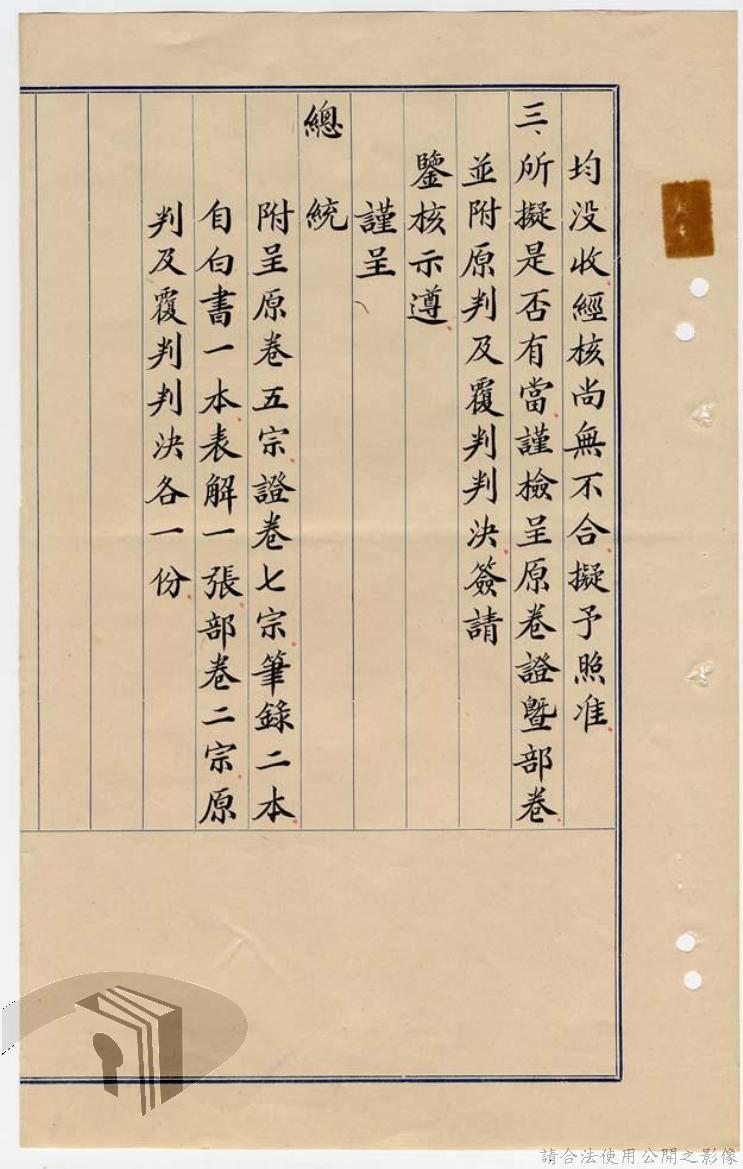 均没收經核尚無不合擬予照准
三、所擬是否有當謹檢呈原卷證暨部卷
並附原判及覆判判決簽請
鑒核示遵
謹呈
總統
附呈原卷五宗證卷七宗筆錄二本
自白書一本表解一張部卷二宗原
判及覆判判決各一份
請合法使用公開之影像